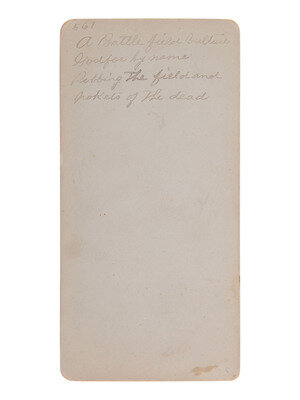 661
A Battle field vulture
Godfoe by name
Robbing The field and
pokets of the dead